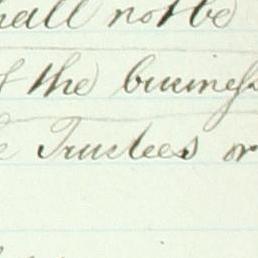 hall not be
f the business
e Trustees or